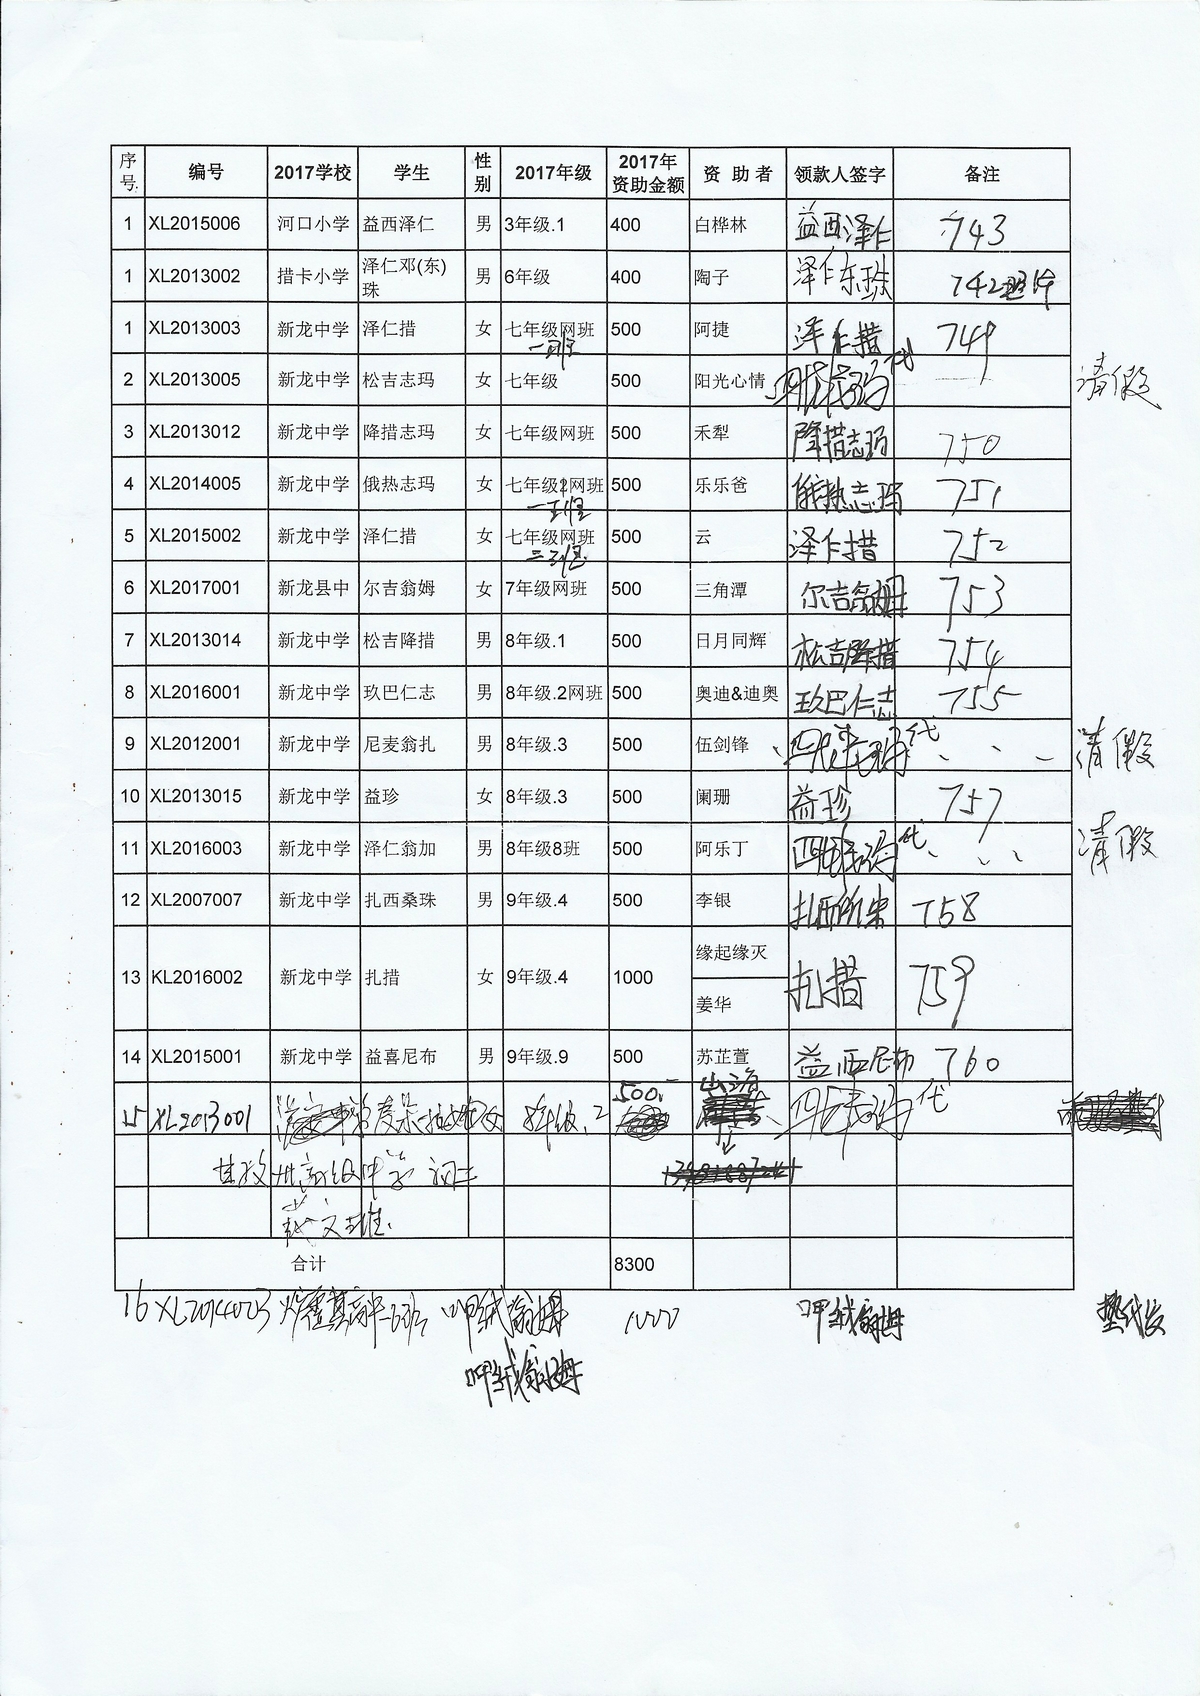 序号 编号 2017学校 学生 性别 2017年级 2017年资助金额 资 助 者 领款人签字 备注
1 XL2015006 河口小学 益西泽仁 男 3年级.1 400 白桦林 益西泽仁 743
1 XL2013002 措卡小学 泽仁邓(东)珠 男 6年级 400 陶子 泽仁东珠 742
1 XL2013003 新龙中学 泽仁措 女 七年级网班 一班 500 阿捷 泽仁措 749
2 XL2013005 新龙中学 松吉志玛 女 七年级 500 阳光心情 代 请假
3 XL2013012 新龙中学 降措志玛 女 七年级网班 500 禾犁 降措志玛 750
4 XL2014005 新龙中学 俄热志玛 女 七年级2网班 500 乐乐爸 俄热志玛 751
5 XL2015002 新龙中学 泽仁措 女 七年级网班 500 云 泽仁措 752
6 XL2017001 新龙县中 尔吉翁姆 女 7年级网班 500 三角潭 尔吉翁姆 753
7 XL2013014 新龙中学 松吉降措 男 8年级.1 500 日月同辉 松吉降措 754
8 XL2016001 新龙中学 玖巴仁志 男 8年级.2网班 500 奥迪&迪奥 玖巴仁志 755
9 XL2012001 新龙中学 尼麦翁扎 男 8年级.3 500 伍剑锋 代 请假
10 XL2013015 新龙中学 益珍 女 8年级.3 500 阑珊 益珍 757
11 XL2016003 新龙中学 泽仁翁加 男 8年级8班 500 阿乐丁 代 请假
12 XL2007007 新龙中学 扎西桑珠 男 9年级.4 500 李银 758
13 KL2016002 新龙中学 扎措 女 9年级.4 1000 缘起缘灭 姜华 扎措 759
14 XL2015001 新龙中学 益喜尼布 男 9年级.9 500 苏芷萱 益西尼布 760
15 XL2013001 女 8年级.2 500 山海 代
甘孜州高级中学
藏文班
合计 8300
16 XL2014023 呷绒翁姆 1000 呷绒翁姆 垫代发
呷绒翁姆